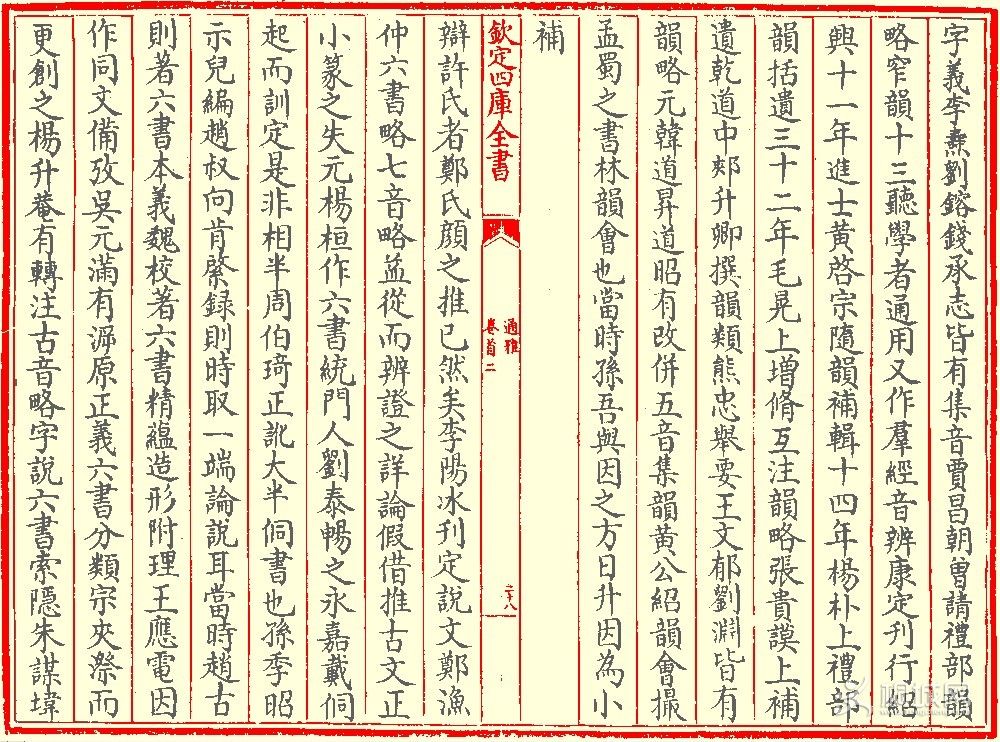 字義李燾劉鎔錢承志皆有集音賈昌朝曽請禮部韻
略窄韻十三聽學者通用又作羣經音辨康定刊行紹
興十一年進士黄啓宗隨韻補輯十四年楊朴上禮部
韻括遺三十二年毛晃上增脩互注韻略張貴謨上補
遺乾道中郟升卿撰韻類熊忠舉要王文郁劉淵皆有
韻略元韓道昇道昭有改併五音集韻黄公紹韻會撮
孟蜀之書林韻會也當時孫吾與因之方日升因為小
補
欽定四庫全書
通雅
卷首二
二十八
辯許氏者鄭氏顔之推已然矣李陽冰刊定說文鄭漁
仲六書略七音略並從而辨證之詳論假借推古文正
小篆之失元楊桓作六書統門人劉泰暢之永嘉戴侗
起而訓定是非相半周伯琦正訛大半侗書也孫季昭
示兒編趙叔向肯綮録則時取一端論說耳當時趙古
則著六書本義魏校著六書精藴造形附理王應電因
作同文備攷吳元滿有泝原正義六書分類宗夾漈而
更創之楊升菴有轉注古音略字說六書索隠朱謀㙔